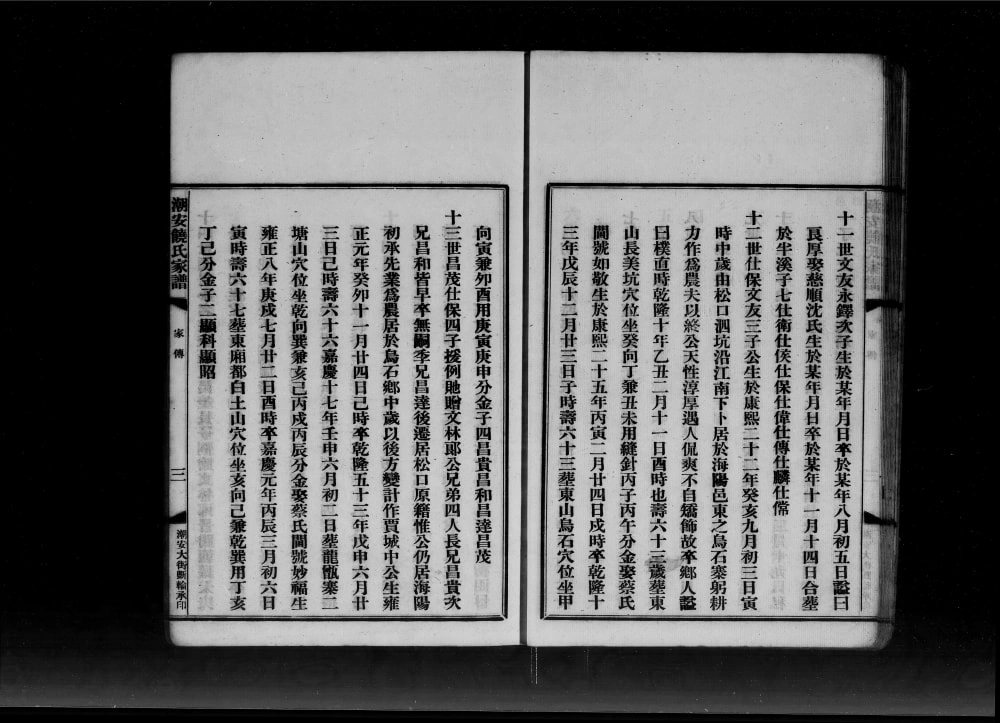 十一世文友永鐸次子生於某年月日卒於某年八月初五日諡曰
良厚娶慈順沈氏生於某年月日卒於某年十一月十四日合塟
於半溪子七仕衛仕侯仕保仕偉仕傳仕麟仕常
十二世仕保文友三子公生於康熙二十二年癸亥九月初三日寅
時中歲由松口泗坑沿江南下卜居於海陽邑東之烏石寨躬耕
力作爲農夫以終公天性淳厚遇人侃爽不自矯飾故卒鄉人諡
曰樸直時乾隆十年乙丑二月十一日酉時也壽六十三歲塟東
山長美坑穴位坐癸向丁兼丑未用縫針丙子丙午分金娶蔡氏
閫號如敬生於康熙二十五年丙寅二月廿四日戌時卒乾隆十
三年戊辰十二月廿三日子時壽六十三塟東山烏石穴位坐甲
向寅兼夘酉用庚寅庚申分金子四昌貴昌和昌達昌茂
十三世昌茂仕保四子援例貤贈文林郞公兄弟四人長兄昌貴次
兄昌和皆早卒無嗣季兄昌達後遷居松口原籍惟公仍居海陽
初承先業爲農居於烏石鄉中歲以後方變計作賈城中公生雍
正元年癸夘十一月廿四日己時卒乾隆五十三年戊申六月廿
三日己時壽六十六嘉慶十七年壬申六月初二日塟龍甑寨二
塘山穴位坐乾向巽兼亥己丙戌丙辰分金娶蔡氏閫號妙福生
雍正八年庚戌七月廿二日酉時卒嘉慶元年丙辰三月初六日
寅時壽六十七塟東廂都白土山穴位坐亥向己兼乾巽用丁亥
丁己分金子二顯科顯昭
潮安饒氏家譜
家傳
三
潮安大街斯輪承印